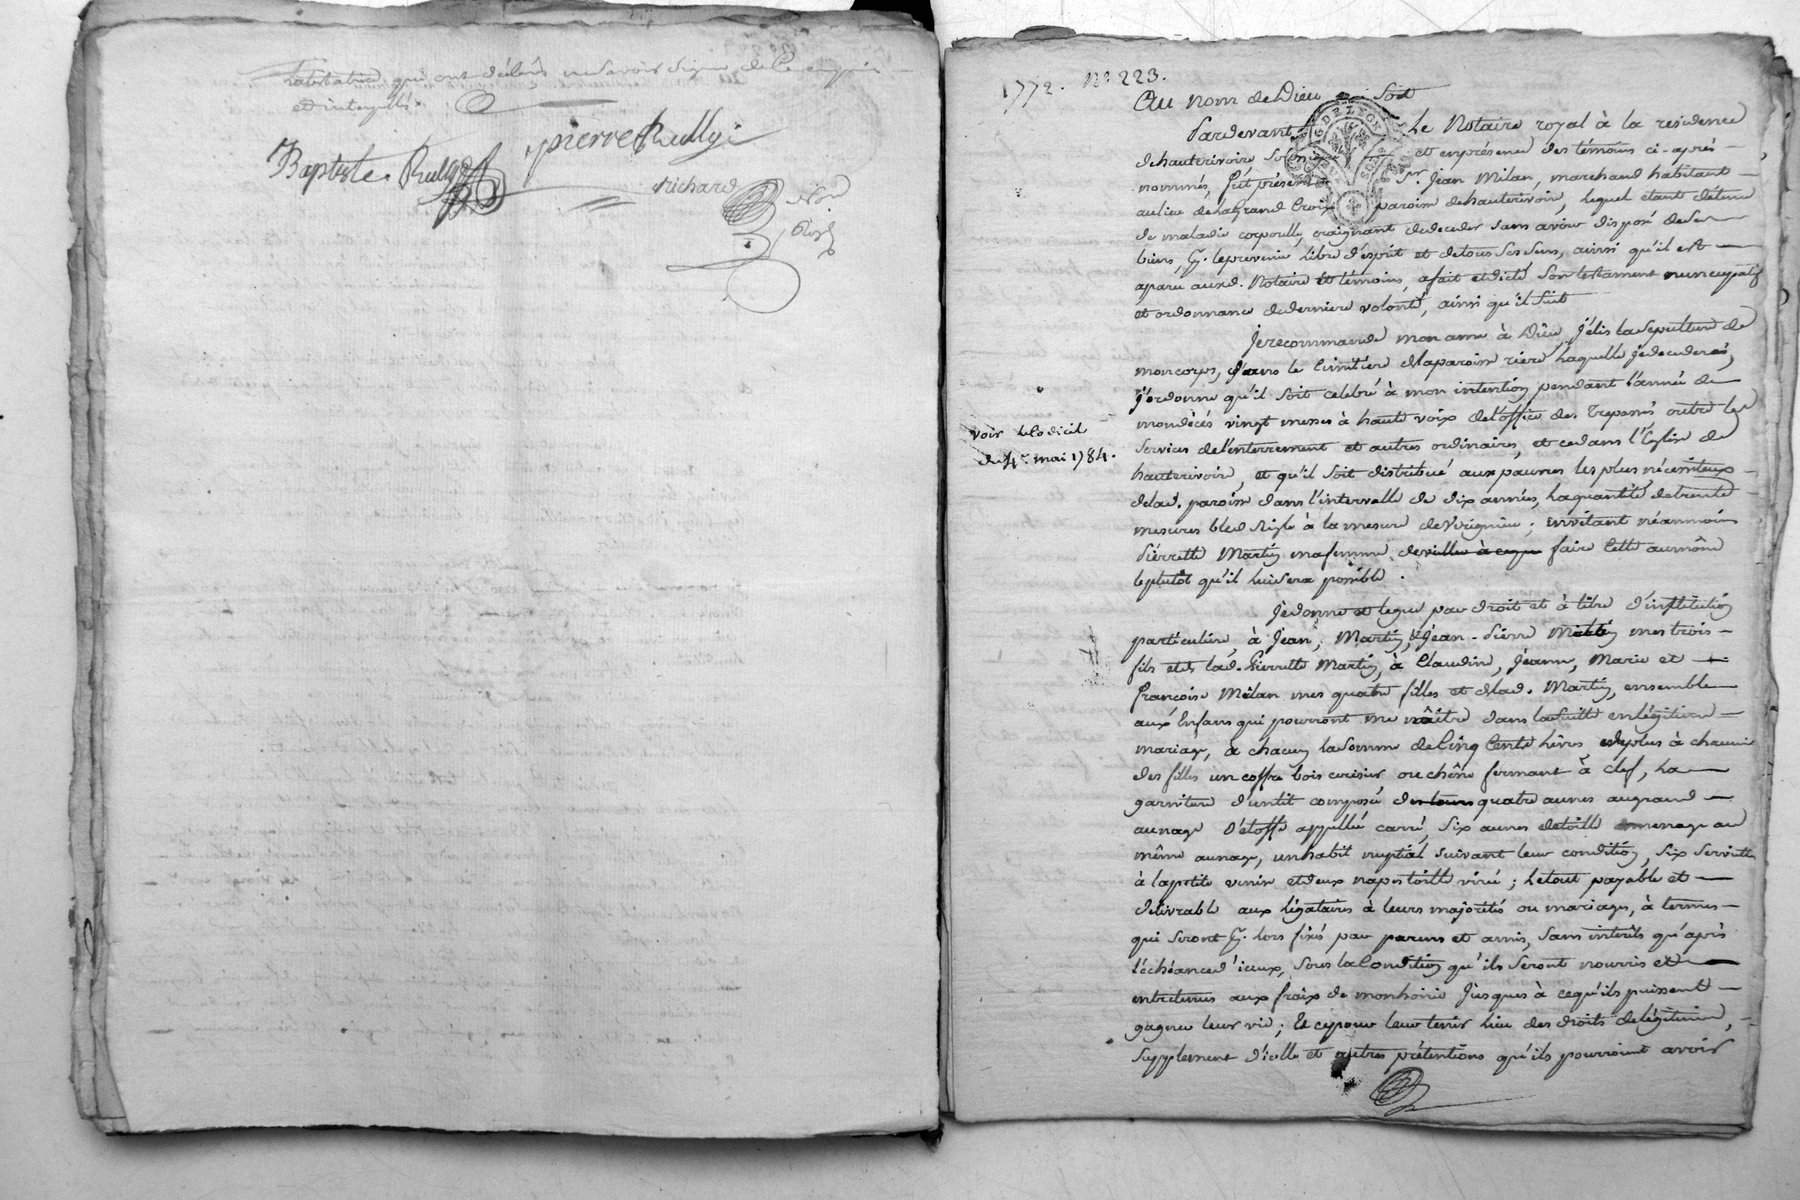 habitants qui ont déclaré ne savoir signer de ce enquis
et interpellés
Baptiste Rully
pierre Rully
richard
Not
Royl
1772. No. 223.
Au nom de Dieu soit
Pardevant Le Notaire royal à la residence
de hauterivoire et en présence des témoins ci-après
nommés, fut présent Sr. Jean Milan, marchand habitant
au lieu de la Grand Croix paroisse de hauterivoire, lequel etant détenu
de maladie corporelle, craignant de deceder sans avoir disposé de ses
biens, libre d'esprit et de tous ses sens, ainsi qu'il est
aparu aud. Notaire et témoins, a fait et dicté son testament nuncupatif
et ordonnance de derniere volonté, ainsi qu'il suit
Je recommande mon ame à Dieu, J'élis la sepulture de
mon corps, dans le Cimitiere de la paroisse riere laquelle je decederai,
J'ordonne qu'il soit celebré à mon intention pendant l'année de
mon décés vingt messes à haute voix de l'office des Trepassés outre les
services de l'enterrement et autres ordinaires, et ce dans l'Eglise de
voir le Codicil
du 4e. mai 1784.
hauterivoire, et qu'il soit distribué aux pauvres les plus nécessiteux
de lad. paroisse dans l'intervalle de dix années, la quantité de trente
mesures bled seigle à la mesure de ; invitant néanmoins
Pierrette Martin ma femme de faire cette aumône
le plutôt qu'il lui sera possible.
Je donne et legue par droit et à titre d'institution
particulière, à Jean, Martin, & Jean-Pierre mes trois
fils et de lad. Pierrette Martin, à Claudine, Jeanne, Marie et
françoise Milan mes quatre filles et de lad. Martin, ensemble
aux Enfans qui pourront me naître dans la suite en légitime
mariage, à chacun la somme de Cinq Cents livres, de plus à chacune
des filles un coffre bois cerisier ou chêne fermant à clef, la
garniture d'un lit composé de quatre aunes au grand
aunage d'étoffe appellée carré, six aunes de toille menage au
même aunage, un habit nuptial suivant leur condition, six serviettes
à la petite venise et deux napes toille ; le tout payable et
délivrable aux légataires à leurs majorités ou mariages, à termes
qui seront lors fixés par parens et amis, sans intérêts qu'après
l'échéance d'iceux, sous la Condition qu'ils seront nourris et
entretenus aux fraix de mon hoirie jusques à ce qu'ils puissent
gagner leur vie; Et ce pour leur tenir lieu des droits de légitime,
supplement d'icelle et autres prétentions qu'ils pourroient avoir